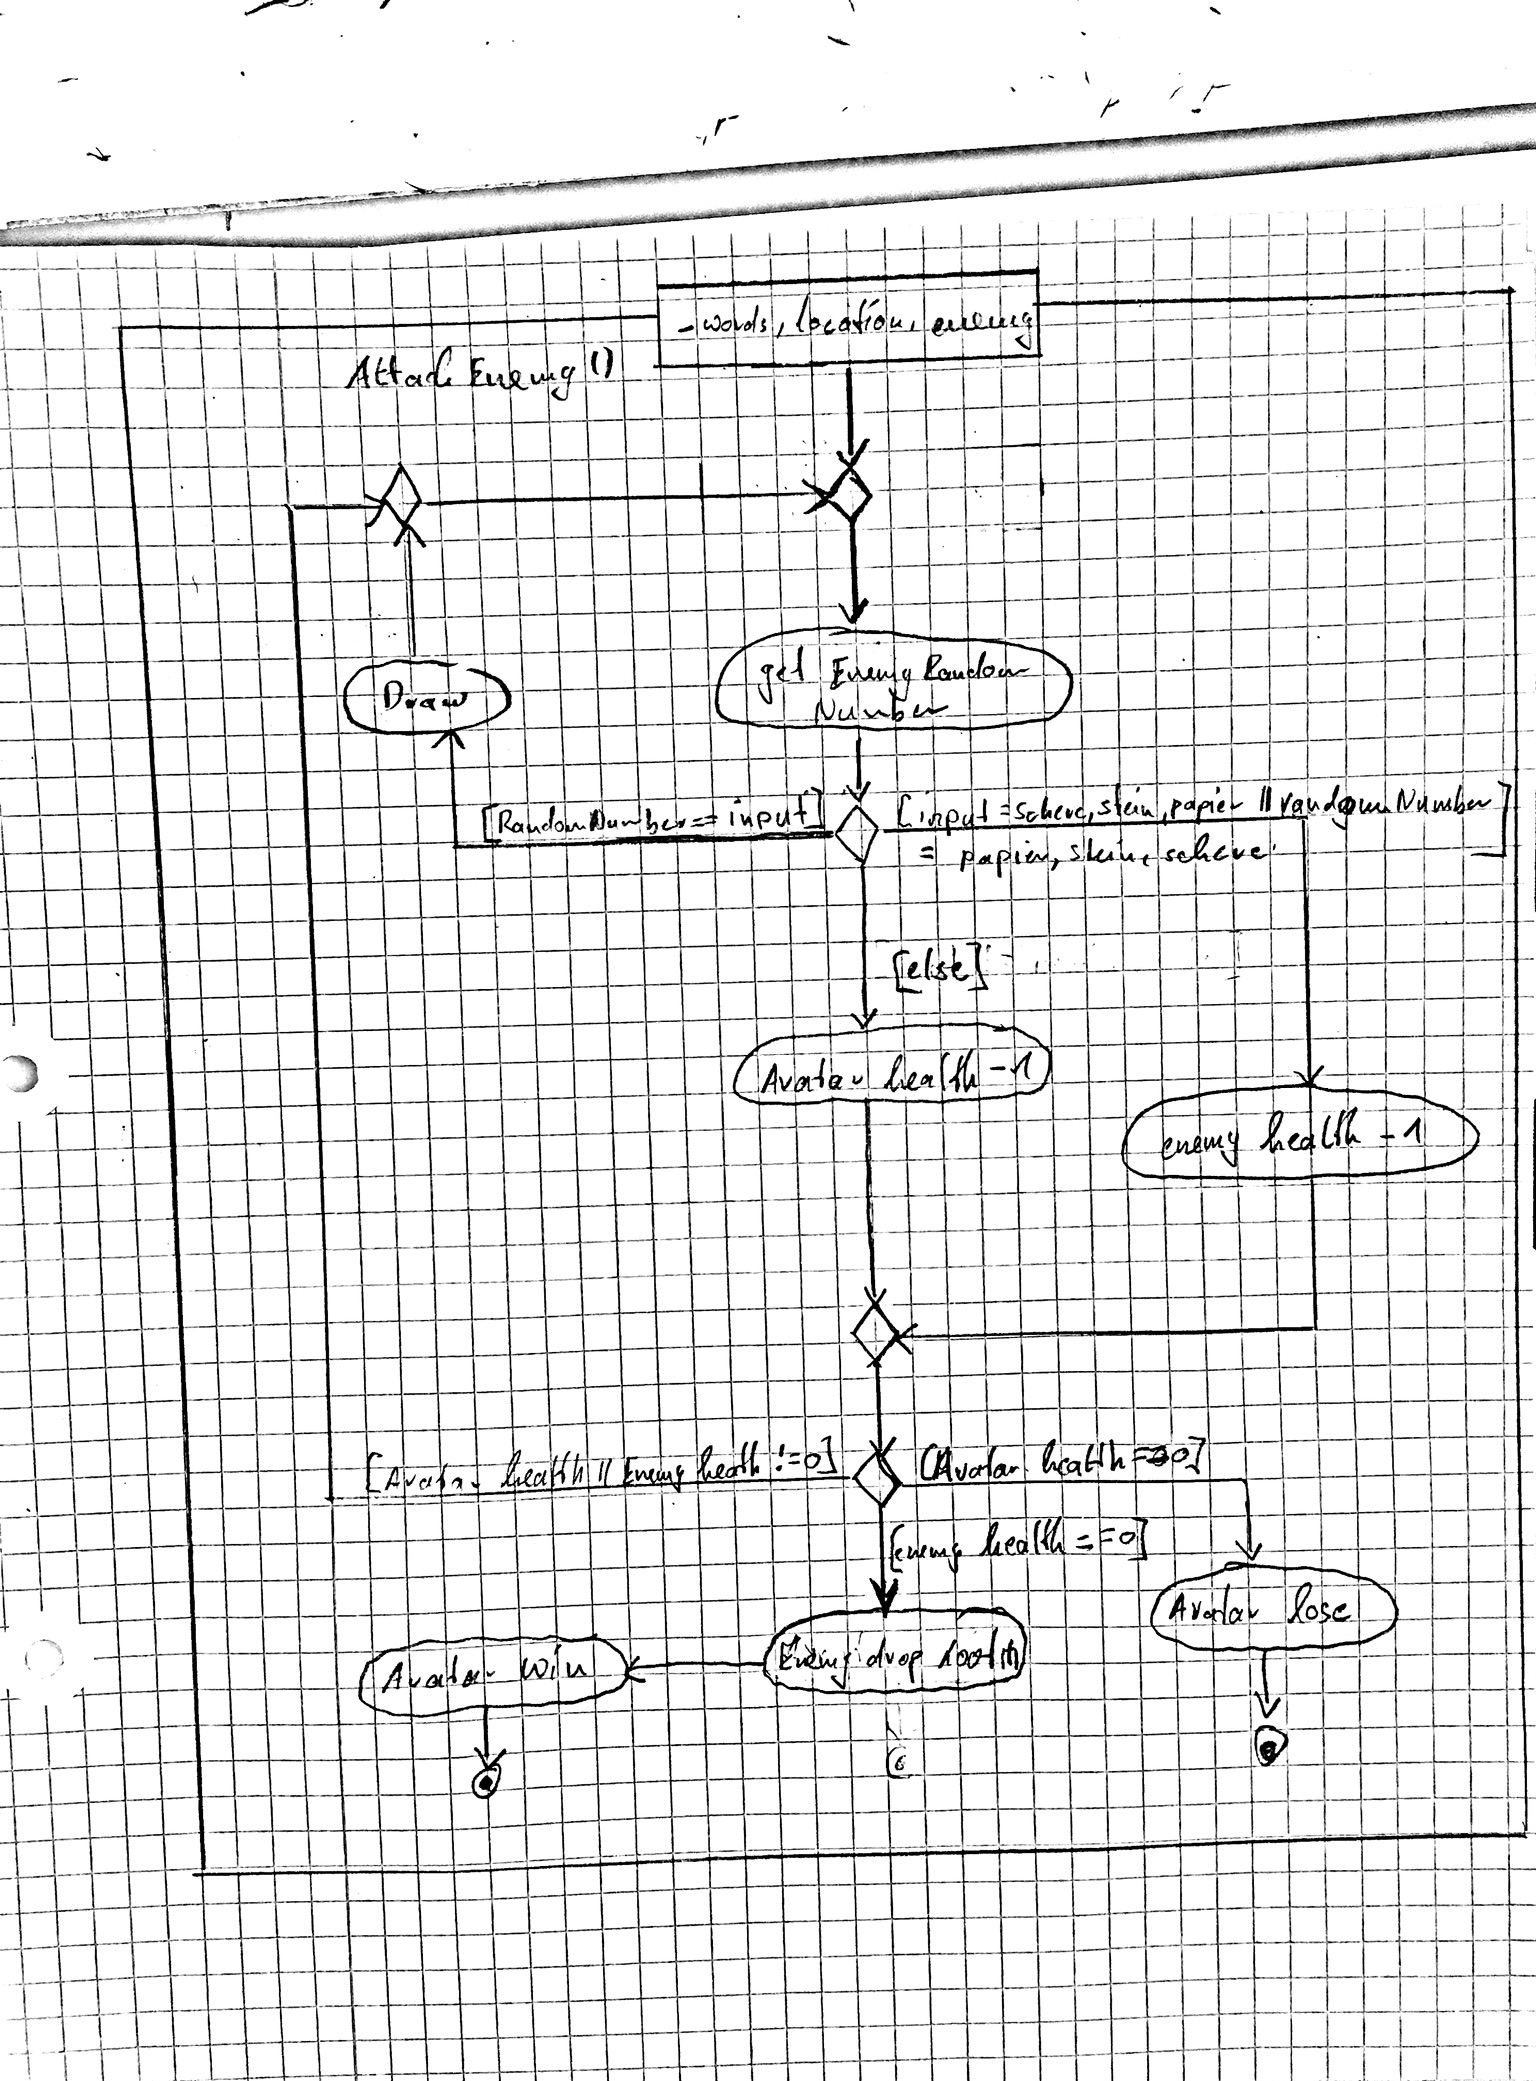 - words, location, enemy
Attack Enemy ()
get Enemy Random
Number
Draw
[RandomNumber == input]
[input = schere, stein, papier || randomNumber
= papier, stein, schere]
[else]
Avatar health -1
enemy health -1
[Avatar health || Enemy health != 0]
[Avatar health == 0]
[enemy health == 0]
Avatar lose
Enemy drop
Avatar win